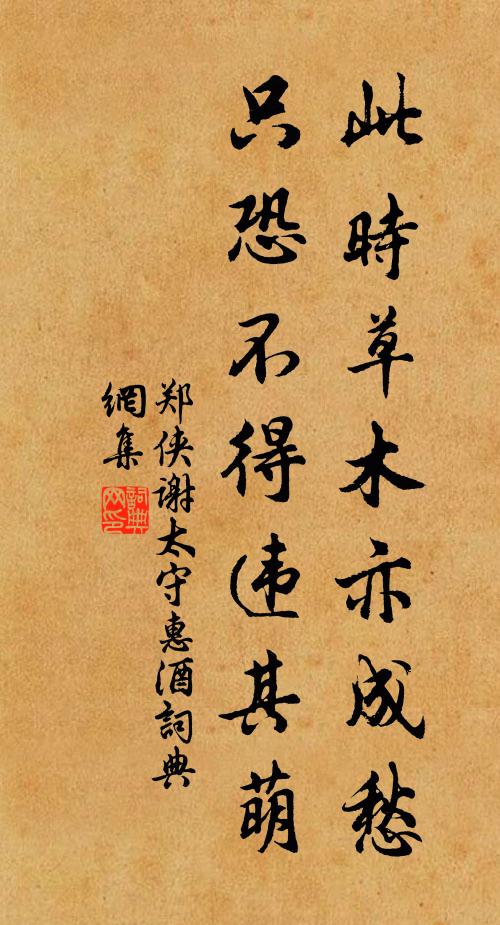 此時草木亦成愁
只恐不得违其萌
郑侠谢太守惠酒詞典
網集
詞典网印